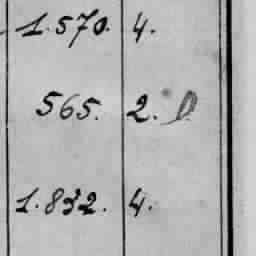 1.570. 4.
565. 2.
1.832. 4.